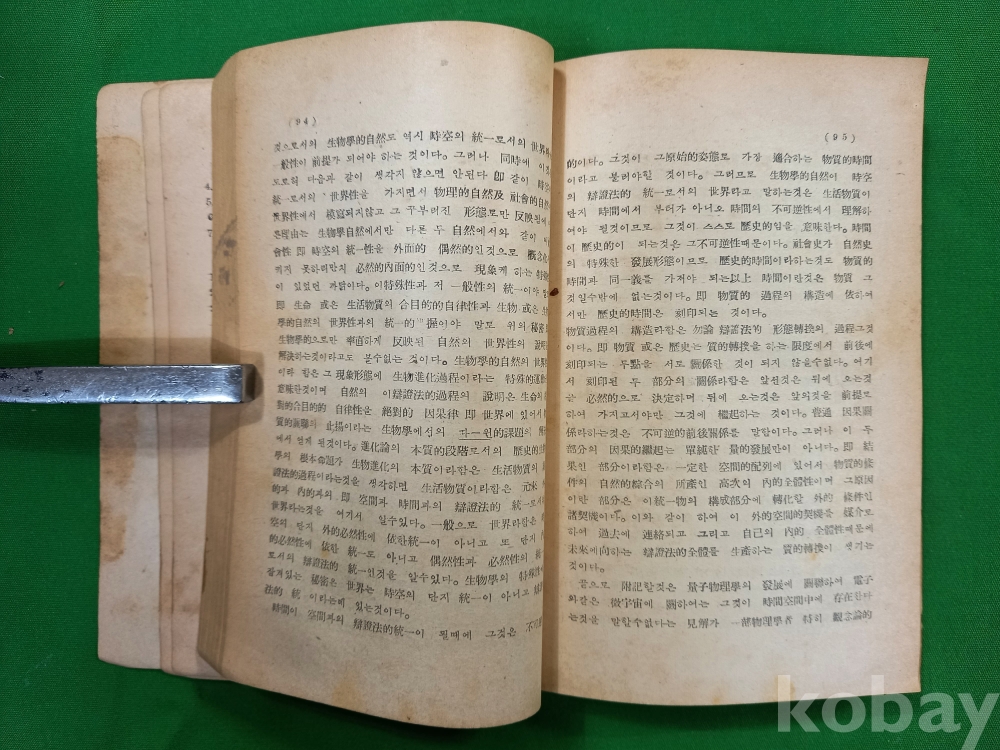 (94)
것으로서의 生物學的自然도 역시 時空의 統一로서의 世界
一般性이 前提가 되어야 하는 것이다. 그러나 同時에 이것
도로혀 다음과 같이 생각지 않으면 안된다 卽 같이 時空
統一로서의 世界性을 가지면서 物理的自然及 社會的自然
世界性에서 模寫되지않고 그 꾸부러진 形態로만 反映된
른理由는 生物學自然에서만 다른 두 自然에서와 같이
會性 卽 時空의 統一性을 外面的 偶然的인것으로 概念
찍지 못하며말지 必然的內面的인것으로 現象케 하는 特殊
이 있었던 까닭이다. 이特殊性과 저 一般性의 統一이야
卽 生命 或은 生活物質의 合目的的自律性과 生物 或은
學的自然의 世界性과의 統一的 握이야 말로 위의 秘密
生物學的으로만 率直하게 反映된 自然의 世界性의 說明
解決하는것이라고도 볼수없는 것이다. 生物學的自然의 世界
이라 함은 그 現象形態에 生物進化過程이라는 特殊的運動
意味한것이며 自然의 이辯證法的過程의 說明은 生命의
對的合目的的 自律性을 絕對的 因果律 卽 世界에 있어서
質的 止揚이라는 生物學에선의 다ー윈的課題의
에서 엄게 된것이다. 進化論의 本質的段階로서의 歷史的
學의 根本命題가 生物進化의 本質이라함은 生活物質의
證法的過程이라는것을 생각하면 生活物質이라함은 元來
的과 內的과의 卽 空間과 時間과의 辯證法的 統一로서
世界라는것을 여기서 일수있다. 一般으로 世界라함은
空의 단지 外的必然性에 依한統一이 아니고 또 단지
的必然性에 依한 統一도 아니고 偶然性과 必然性의 統
로서의 辯證法的 統一인것을 알수있다. 生物學의 特殊性
잠겨있는 秘密은 世界는 時空의 단지 統一이 아니고
法的 統一이라는데 있는것이다.
時間이 空間과의 辯證法的統一이 될때에 그것은 不可
(95)
的이다. 그것이 그原始的姿態로 가장 適合하는 物質的時間
이라고 불러야될 것이다. 그러므로 生物學的自然이 時空
의 辯證法的 統一로서의 世界라고 말하는것은 生活物質이
단지 時間에서 부터가 아니오 時間의 不可逆性에서 理解하
여야 될것이므로 그것이 스스로 歷史的임을 意味한다. 時間
이 歷史的이 되는것은 그不可逆性때문이다. 社會史가 自然史
의 特殊한 發展形態이므로 歷史的時間이라하는것도 物質的
時間과 同一義를 가져야 되는以上 時間이란것은 物質 그
것일수밖에 없는것이다. 卽 物質的 過程의 構造에 依하여
서만 歷史的時間은 刻印되는 것이다.
物質過程의 構造라함은 勿論 辯證法的 形態轉換의 過程그것
이다. 卽 物質 或은 歷史는 質的轉換을 하는 限度에서 前後에
刻印되는 두點을 서로 關係한 것이 되지 않을수없다. 여기
서 刻印된 두 部分의 關係라함은 앞선것은 뒤에 오는것
을 必然的으로 決定하며 뒤에 오는것은 앞의것을 前提로
하여 가지고서야만 그것에 繼起하는 것이다. 普通 因果關
係라하는것은 不可逆的前後關係를 말함이다. 그러나 이 두
部分의 因果的繼起는 單純한 量的發展만이 아니다. 卽 結
果인 部分이라함은 一定한 空間的配列에 있어서 物質的條
件의 自然的綜合의 所產인 高次의 內的全體性이며 그原因
이란 部分은 이統一物의 構成部分에 轉化할 外的 條件인
諸契機이다. 이와 같이 하여 이 外的空間的契機를 媒介로
하여 過去에 連絡되고 그리고 自己의 內的 全體性때문에
未來에向하는 辯證法的全體를 生產하는 質的轉換이 생기는
것이다.
끝으로 附記할것은 量子物理學의 發展에 關聯하여 電子
와같은 微宇宙에 關하여는 그것이 時間空間中에 存在한다
는것을 말할수없다는 見解가 一部物理學者 特히 觀念論的
kobay